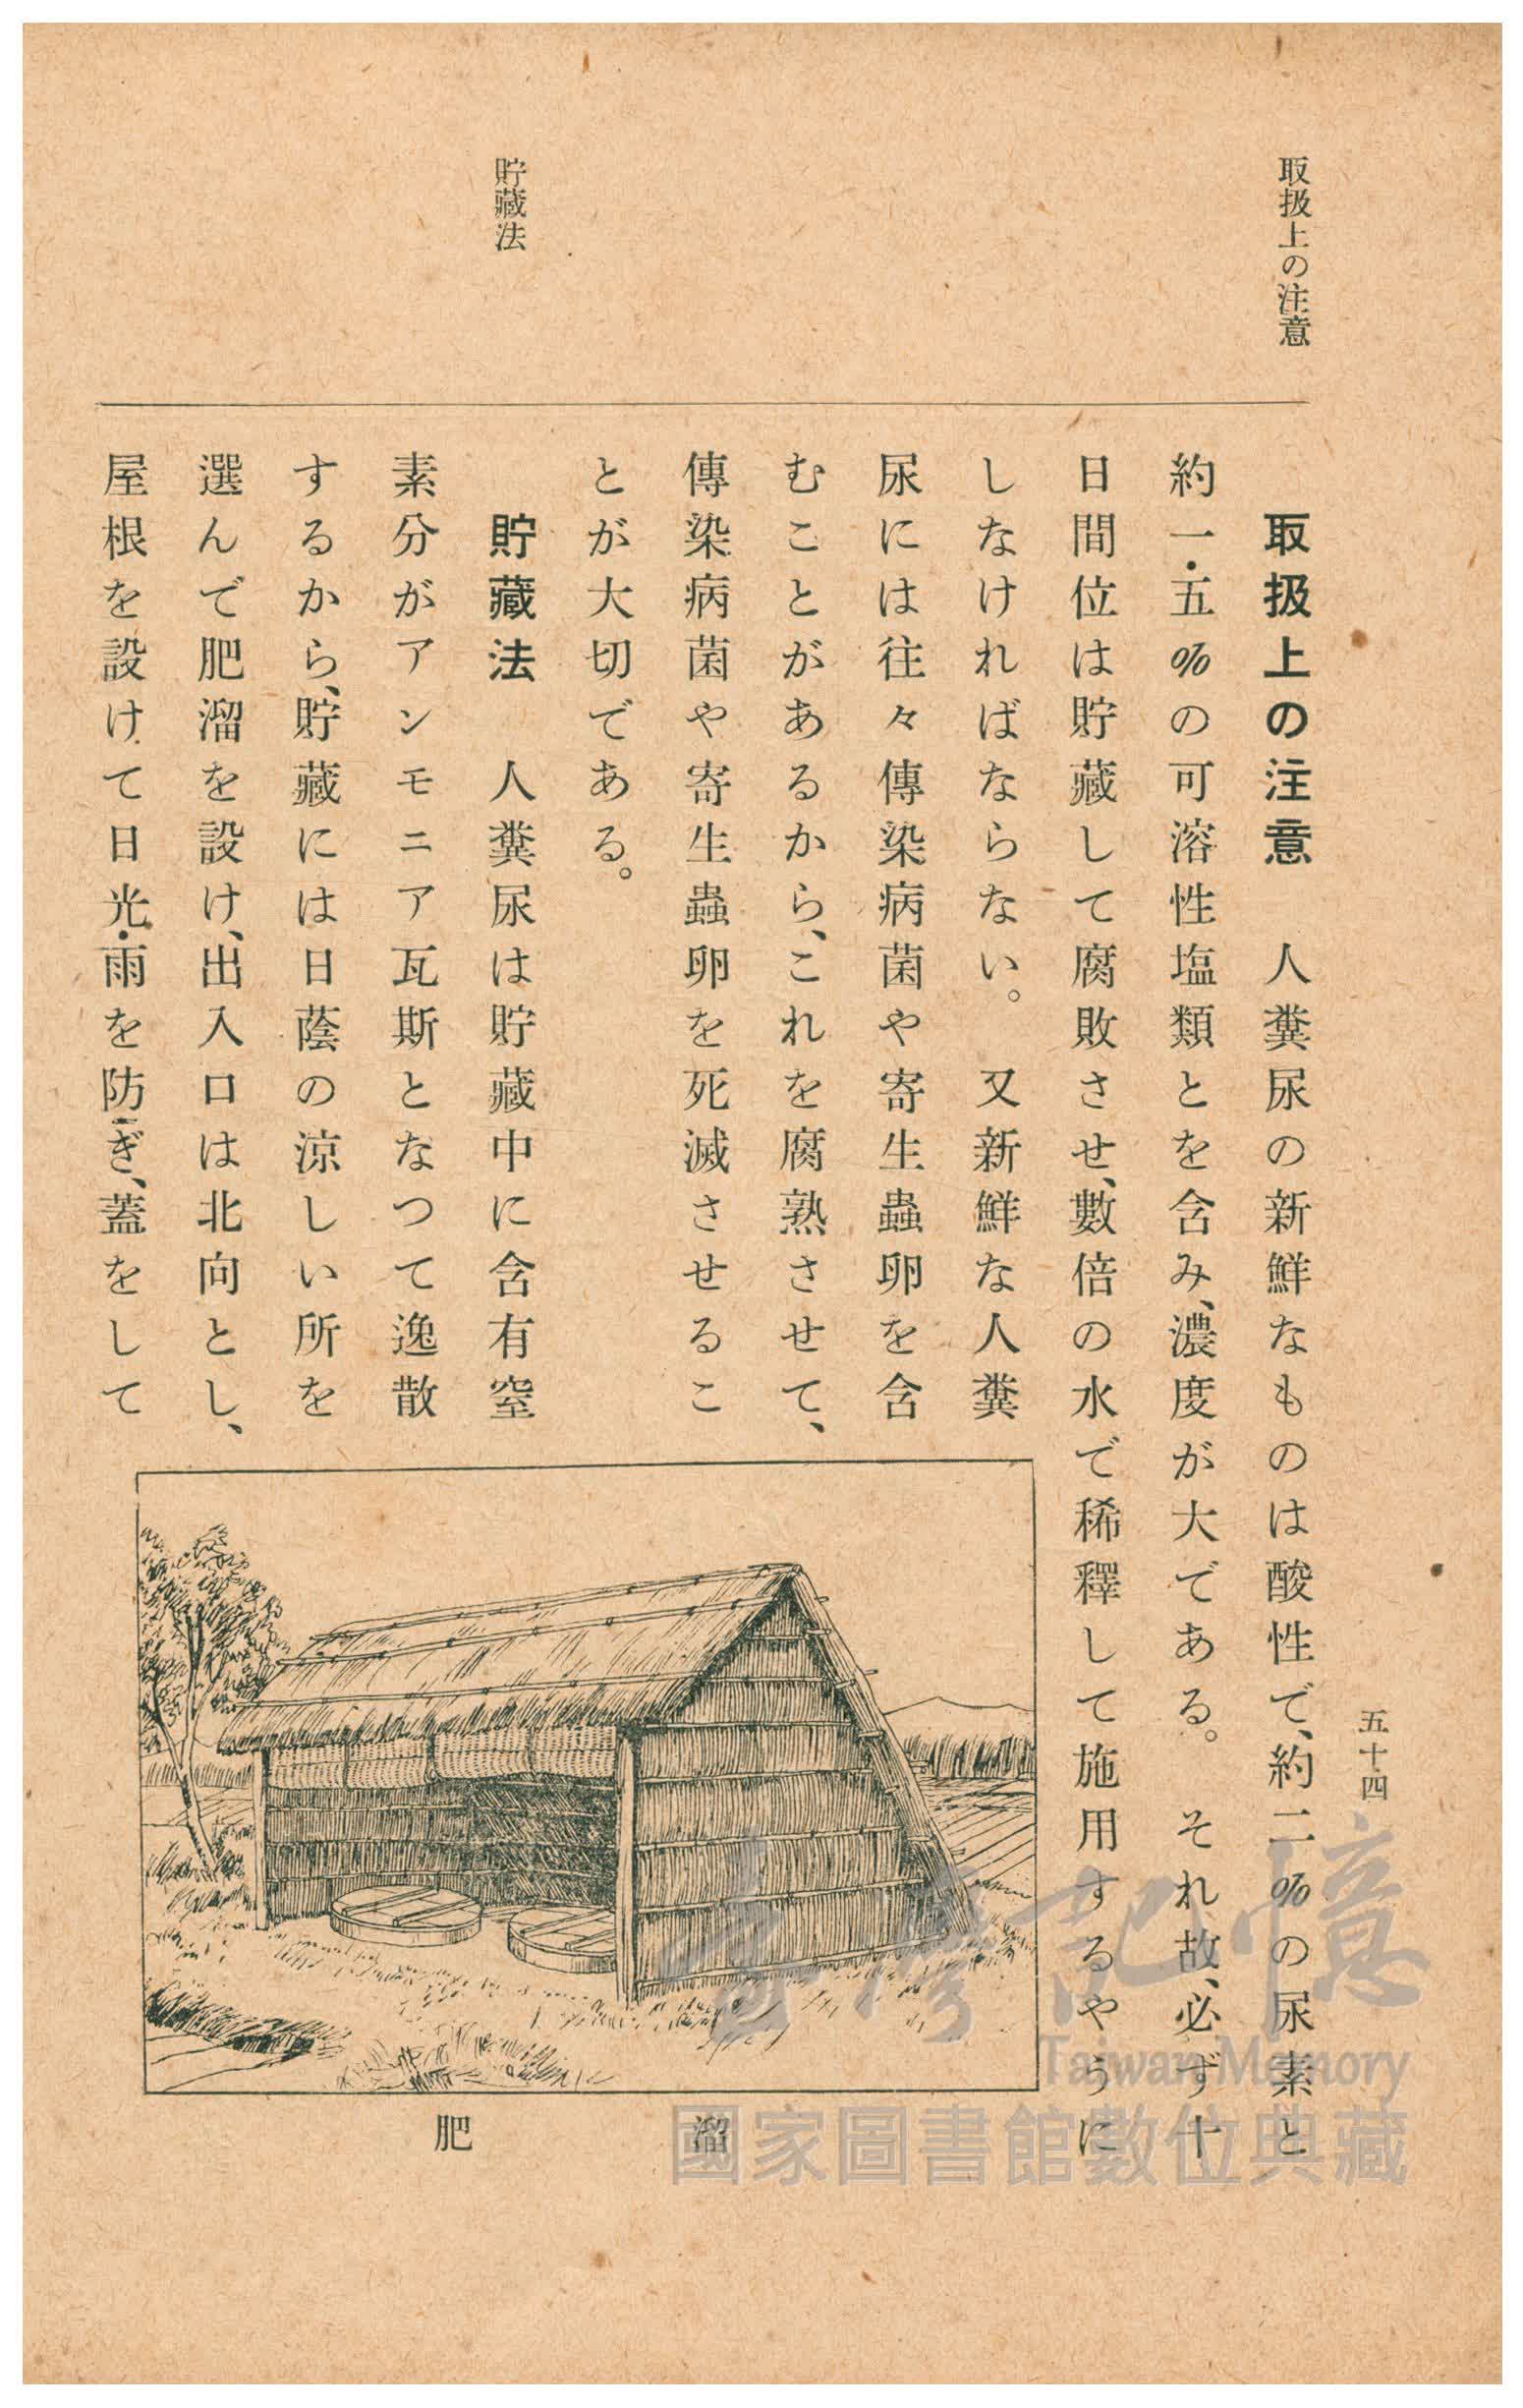 五十四
取扱上の注意
取扱上の注意　人糞尿の新鮮なものは酸性で、約二%の尿素と
約一・五%の可溶性塩類とを含み、濃度が大である。それ故、必ず十
日間位は貯藏して腐敗させ、數倍の水で稀釋して施用するやうに
しなければならない。又新鮮な人糞
尿には往々傳染病菌や寄生蟲卵を含
むことがあるから、これを腐熟させて、
傳染病菌や寄生蟲卵を死滅させるこ
とが大切である。
貯藏法
貯藏法　人糞尿は貯藏中に含有窒
素分がアンモニア瓦斯となつて逸散
するから、貯藏には日蔭の涼しい所を
選んで肥溜を設け、出入口は北向とし、
屋根を設けて日光・雨を防ぎ、蓋をして
肥溜
臺灣記憶
Taiwan Memory
國家圖書館數位典藏